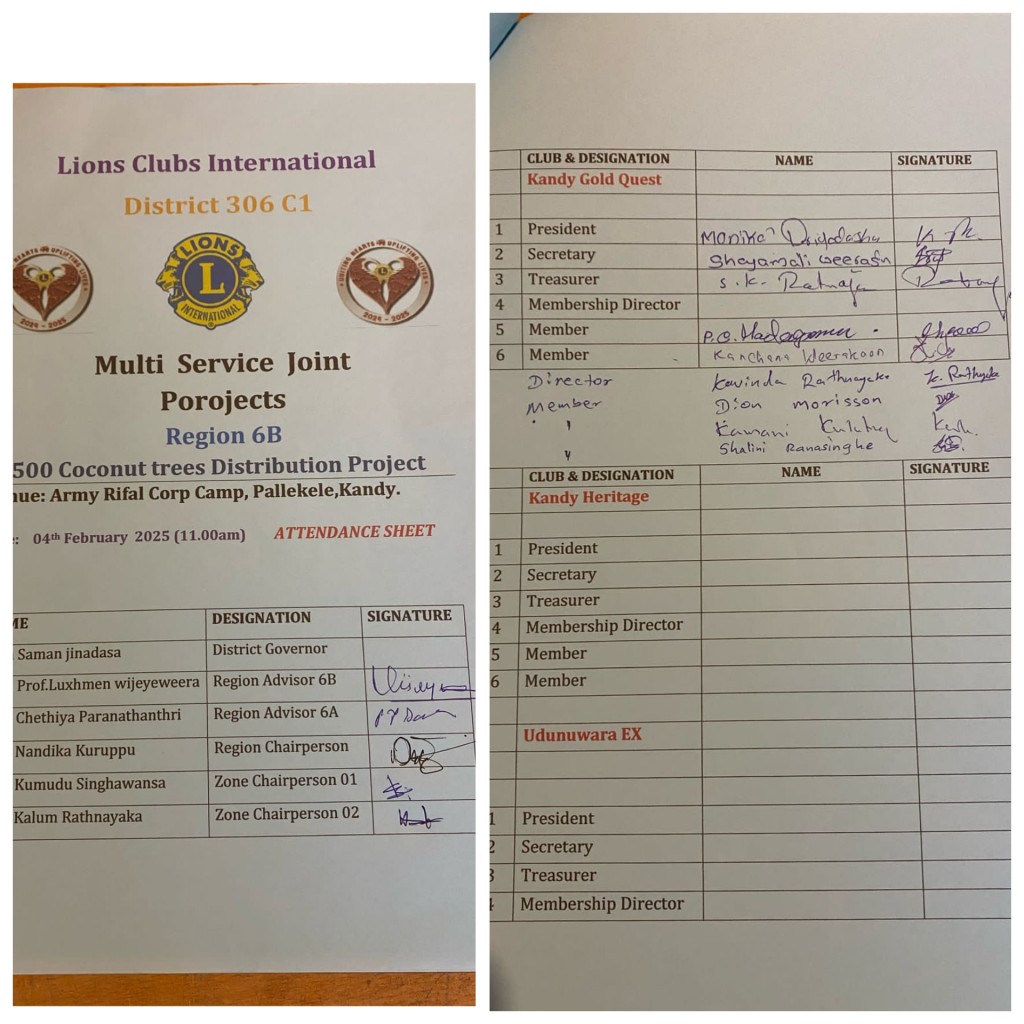 Lions Clubs International
District 306 C1
HEARTS UPLIFTING LIVES
2024 - 2025
LIONS
L
INTERNATIONAL
HEARTS UPLIFTING LIVES
2024 - 2025
Multi Service Joint
Porojects
Region 6B
500 Coconut trees Distribution Project
nue: Army Rifal Corp Camp, Pallekele,Kandy.
e: 04th February 2025 (11.00am) ATTENDANCE SHEET
ME DESIGNATION SIGNATURE
Saman jinadasa District Governor
Prof.Luxhmen wijeyeweera Region Advisor 6B
Chethiya Paranathanthri Region Advisor 6A
Nandika Kuruppu Region Chairperson
Kumudu Singhawansa Zone Chairperson 01
Kalum Rathnayaka Zone Chairperson 02
CLUB & DESIGNATION NAME SIGNATURE
Kandy Gold Quest
1 President Monika
2 Secretary Sheyamali
3 Treasurer S.K.
4 Membership Director
5 Member P.G.
6 Member Kanchana Weerakoon
Director Kavinda Rathnayake K. Rathnayake
Member Dion morisson
Kamani
Shalini Ranasinghe
CLUB & DESIGNATION NAME SIGNATURE
Kandy Heritage
1 President
2 Secretary
3 Treasurer
4 Membership Director
5 Member
6 Member
Udunuwara EX
1 President
2 Secretary
3 Treasurer
4 Membership Director